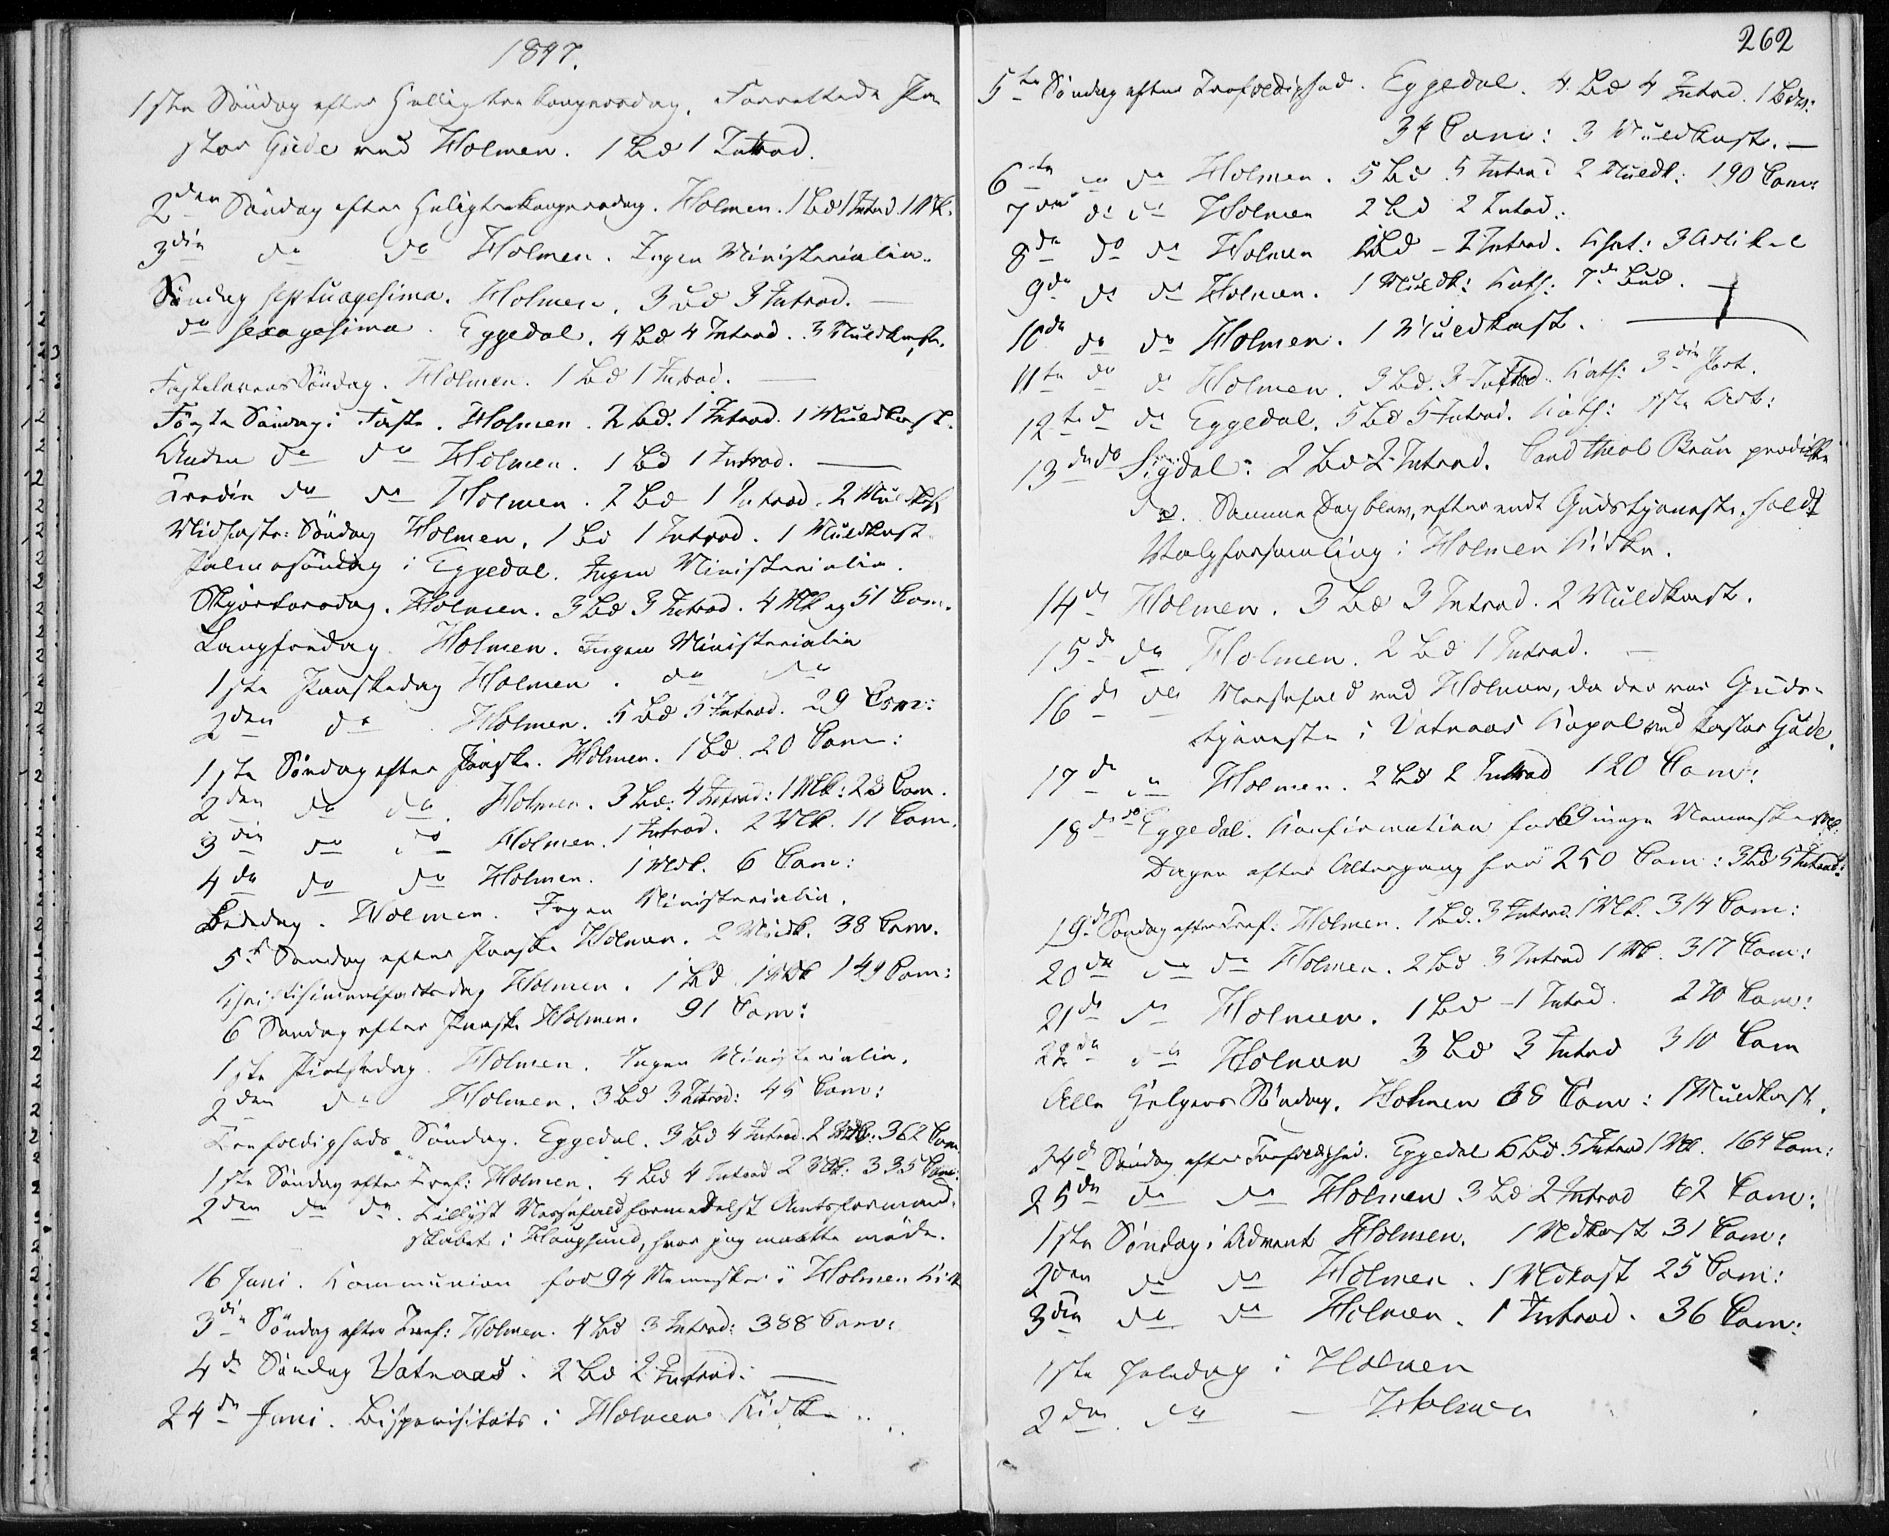 1847.
1ste Söndag efter Helligtrekongersdag. Forrettede Pa-
stor Gude ved Holmen. 1 Bd 1 Introd.
2den Söndag efter Heligtrekongersdag. Holmen. 1 Bd 1 Introd 1 Mk.
3die do do Holmen. Ingen Ministerialia.
Söndag septuagesima. Holmen. 3 Bd 3 Introd. —
do sexagesima. Eggedal. 4 Bd 4 Introd. 3 Muldkast.
Fastelavens Söndag. Holmen. 1 Bd 1 Introd. —
Förste Söndag i Faste. Holmen. 2 Bd. 1 Introd. 1 Muldkast.
Anden do do Holmen. 1 Bd 1 Introd. —
Tredie do do Holmen. 2 Bd 1 Introd. 2 Muldk.
Midfaste: Söndag Holmen. 1 Bd 1 Introd. 1 Muldkast.
Palmesöndag i Eggedal. Ingen Ministerialia.
Skjærtorsdag. Holmen. 3 Bd 3 Introd. 4 Mk og 51 Com.
Langfredag. Holmen. Ingen Ministerialia
1ste Paaskedag Holmen. do do
2den do Holmen. 5 Bd 5 Introd. 29 Com:
1ste Söndag efter Paaske. Holmen. 1 Bd. 20 Com:
2den do do Holmen. 3 Bd. 4 Introd: 1 Mk: 23 Com.
3die do do Holmen. 1 Introd. 2 Mk. 11 Com.
4de do do Holmen. 1 Mdk. 6 Com:
Bededag. Holmen. Ingen Ministerialia.
5te Söndag efter Paaske Holmen. 2 Muldk. 38 Com.
Christihimmelfartsdag Holmen. 1 Bd. 1 Mdk 149 Com:
6 Söndag efter Paaske Holmen. 91 Com:
1ste Pintsedag. Holmen. Ingen Ministerialia.
2den do Holmen. 3 Bd 3 Introd: 45 Com:
Trefoldigheds Söndag. Eggedal. 3 Bd 4 Introd. 2 Mdk: 362 Com
1ste Söndag efter Tref: Holmen. 4 Bd 4 Introd 2 Mk. 335 Com:
2den do do. Tillyst Messefald formedelst Amtsformand-
skabet i Hougsund, hvor jeg maatte möde.
16 Juni. Kommunion for 94 Mennesker i Holmen Kirke
3die Söndag efter Tref: Holmen. 4 Bd 3 Introd: 388 Com:
4de Söndag Vatnaas. 2 Bd 2 Introd: —
24de Juni. Bispevisitats i Holmen Kirke..
262
5te Söndag efter Trefoldighed. Eggedal. 4 Bd 4 Introd. 1 Bdv:
34 Com: 3 Muldkast. —
6te do do Holmen. 5 Bd 5 Introd 2 Muldk: 190 Com:
7de do do Holmen 2 Bd 2 Introd.
8de do do Holmen Bd – 2 Introd. Chat: 3 Artikel
9de do do Holmen. 1 Muldk: Kath: 7de Bud.
10de do do Holmen. 1 Muldkast. —
11te do do Holmen. 3 Bd. 3 Introd. Kath: 3die Part.
12te do do Eggedal. 5 Bd 5 Introd. Kath: 1ste Art:
13de do Sigdal. 2 Bd 2 Introd. Cand theol Bruun prædike-
de. Samme Dag blev, efter endt Gudstjeneste, holdt
Valgforsamling i Holmen Kirke.
14de Holmen. 3 Bd 3 Introd. 2 Muldkast.
15de do Holmen. 2 Bd 1 Introd. —
16de do Messefald ved Holmen, da der var Guds-
tjeneste i Vatnaas Kapel ved Pastor Gude.
17de do Holmen. 2 Bd 2 Introd 120 Com:
18de do Eggedal. Konfirmation for 69 unge Mennesker
Dagen efter Altergang for 250 Com: 3 Bd 5 Introd:
19de Söndag efter Tref: Holmen. 1 Bd. 3 Introd 1 Mk. 314 Com:
20de do do Holmen. 2 Bd 3 Introd 1 Mk. 317 Com:
21de do Holmen. 1 Bd – 1 Introd. 270 Com:
22de do Holmen 3 Bd 3 Introd 310 Com
Alle Helgens Söndag. Holmen 38 Com: 1 Muldkast.
24de Söndag efter Trefoldighed. Eggedal 6 Bd. 5 Introd 1 Mk. 164 Com:
25de do do Holmen 3 Bd 2 Introd 62 Com:
1ste Söndag i Advent Holmen. 1 Mdkast 31 Com:
2den do do Holmen. 1 Mdkast 25 Com:
3die do do Holmen. 1 Introd. 36 Com:
1ste Juledag i Holmen
2den do — Holmen